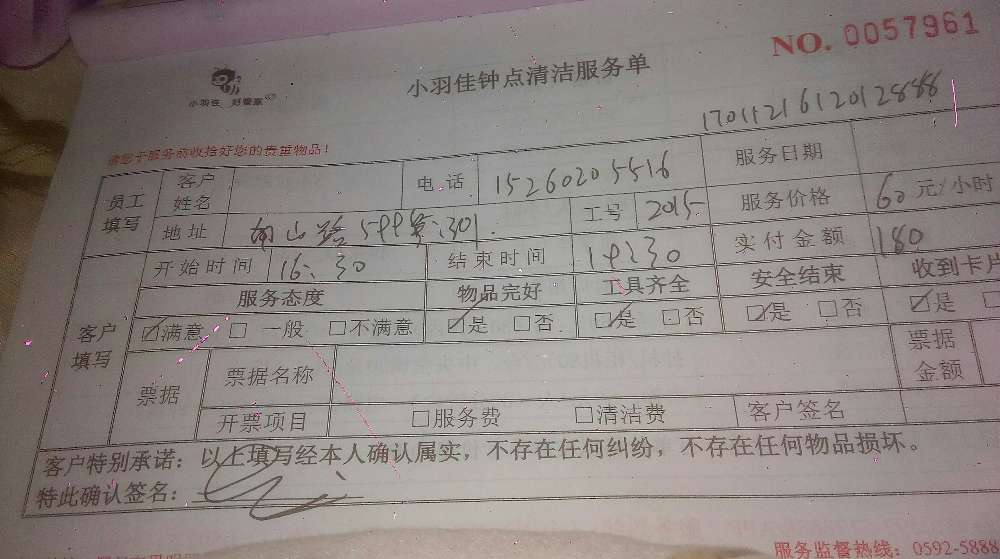 NO. 0057961
小羽佳 好管家
小羽佳钟点清洁服务单
170112161201 2888
请您于服务前收拾好您的贵重物品!
员工填写 客户姓名 电话 15260205516 服务日期
地址 599 301 工号 2015 服务价格 60 元/小时
客户填写 开始时间 16:30 结束时间 19:30 实付金额 180
服务态度 物品完好 工具齐全 安全结束 收到卡片
☑满意 □一般 □不满意 ☑是 □否 ☑是 □否 ☑是 □否 ☑是 □
票据 票据名称 票据金额
开票项目 □服务费 □清洁费 客户签名
客户特别承诺：以上填写经本人确认属实，不存在任何纠纷，不存在任何物品损坏。
特此确认签名：
服务监督热线：0592-5888